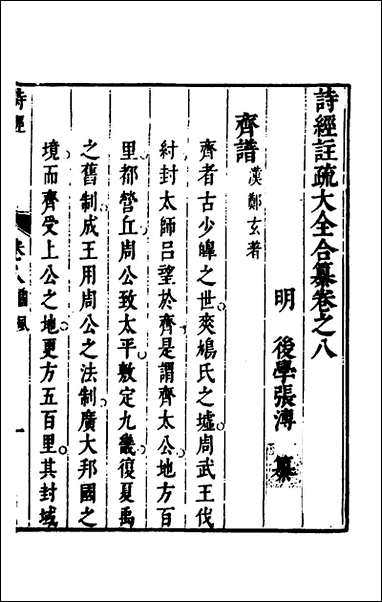 詩經註疏大全合纂卷之八
明 後學張溥 纂
齊譜 漢鄭玄著
齊者古少皞之世爽鳩氏之墟周武王伐
紂封太師呂望於齊是謂齊太公地方百
里都營丘周公致太平敷定九畿復夏禹
之舊制成王用周公之法制廣大邦國之
境而齊受上公之地更方五百里其封域
詩經 卷之八 國風 一